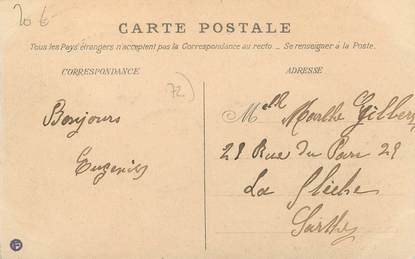 20 €
CARTE POSTALE
Tous les Pays étrangers n'acceptent pas la Correspondance au recto _ Se renseigner à la Poste.
CORRESPONDANCE
ADRESSE
72)
Bonjours
Eugénie
Melle Marthe Gilbert
29 Rue du Parc 29
La Flèche
Sarthe